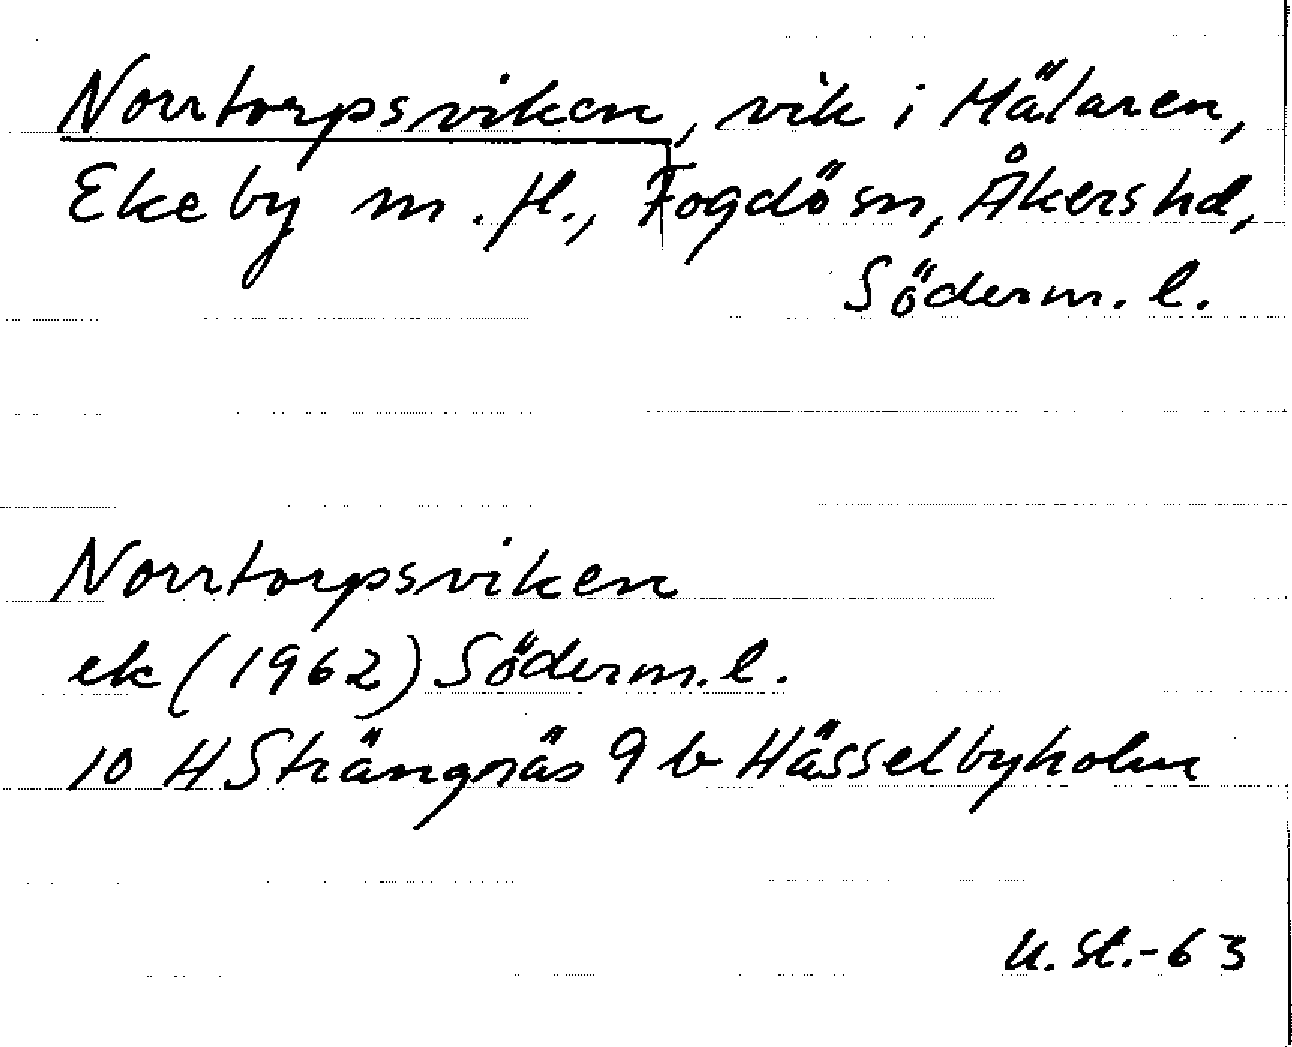 Norrtorpsviken, vik i Mälaren,
Ekeby m. fl., Fogdö sn, Åkers hd,
Söderm. l.
Norrtorpsviken
ek (1962) Söderm. l.
10 H Strängnäs 9 b Hässelbyholm
U. St. - 63